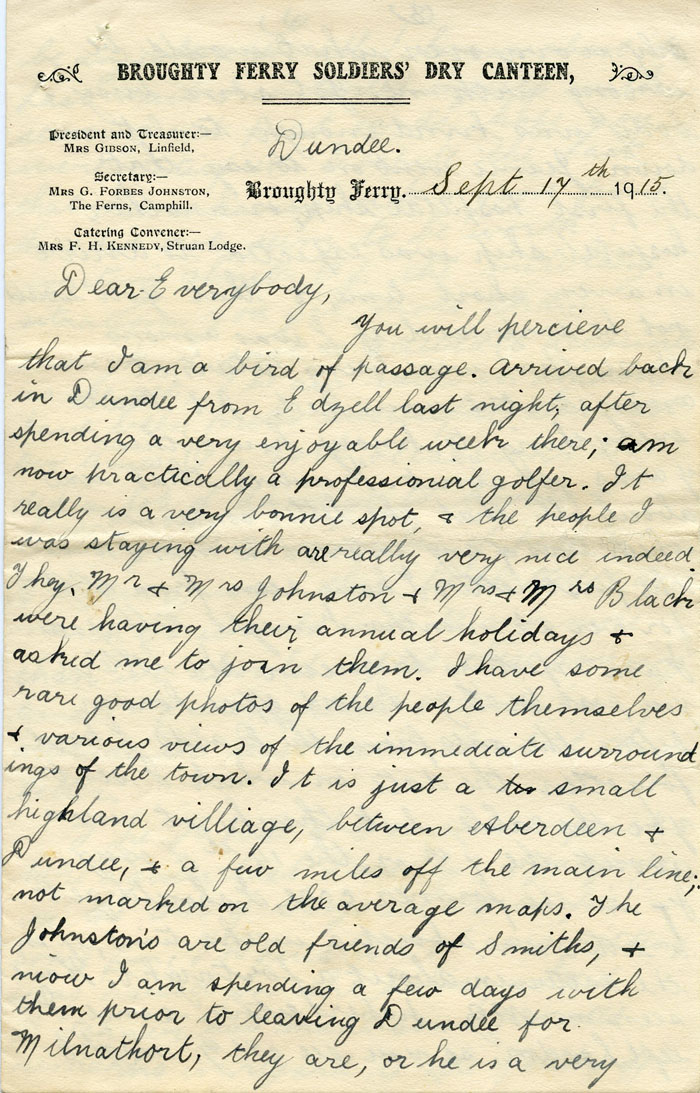 BROUGHTY FERRY SOLDIERS' DRY CANTEEN,
President and Treasurer:—
MRS GIBSON, Linfield,
Secretary:—
MRS G. FORBES JOHNSTON,
The Ferns, Camphill.
Catering Convener:—
MRS F. H. KENNEDY, Struan Lodge.
Dundee.
Broughty Ferry. Sept 17th 1915.
Dear Everybody,
You will percieve
that I am a bird of passage. Arrived back
in Dundee from Edzell last night, after
spending a very enjoyable week there; am
now practically a professional golfer. It
really is a very bonnie spot, & the people I
was staying with are really very nice indeed
They, Mr & Mrs Johnston & Mrs & Mrs Black
were having their annual holidays &
asked me to join them. I have some
rare good photos of the people themselves
& various views of the immediate surround
ings of the town. It is just a small
highland villiage, between Aberdeen &
Dundee, & a few miles off the main line;
not marked on the average maps. The
Johnston's are old friends of Smiths, &
now I am spending a few days with
them prior to leaving Dundee for
Milnathort, they are, or he is a very